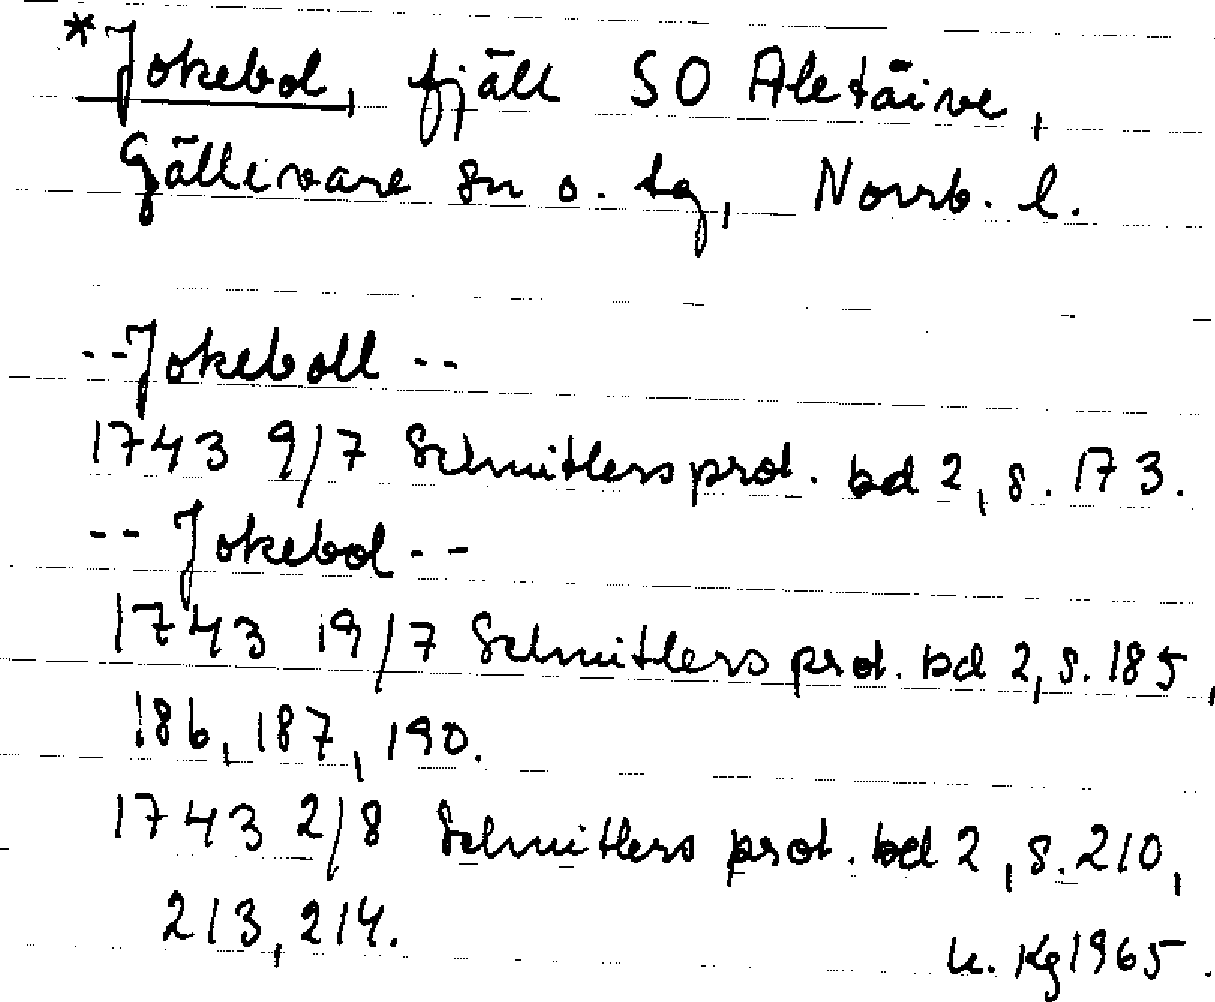 *Jokebol, fjäll SO Aletäive,
Gällivare sn o. tg, Norrb. l.
--Jokeboll--
1743 9/7 Schnitlers prot. bd 2, s. 173.
--Jokebol--
1743 19/7 Schnitlers prot. bd 2, s. 185,
186, 187, 190.
1743 2/8 Schnitlers prot. bd 2, s. 210,
213, 214.
u. Kg 1965.